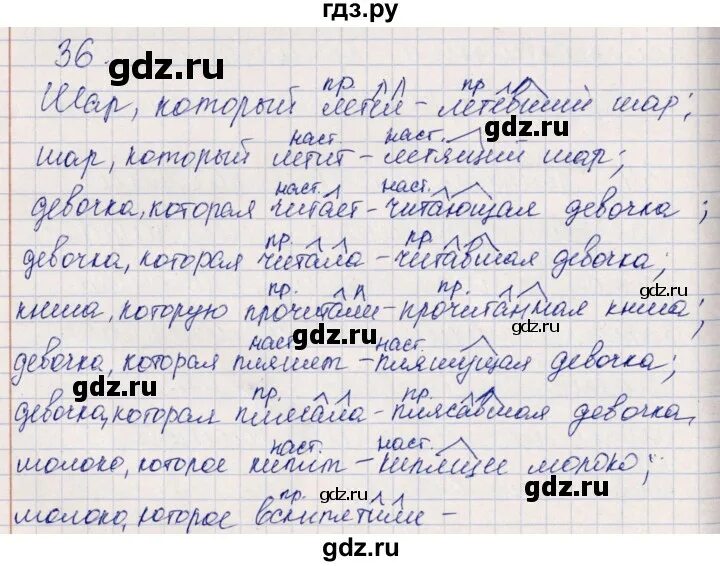 гдз.ру
36.
gdz.ru
gdz.ru
пр. пр.
Шар, который летел - летевший шар;
наст. gdz.ru наст.
шар, который летит - летящий шар;
наст. наст.
девочка, которая читает - читающая девочка;
пр. gdz.ru пр.
девочка, которая читала - читавшая девочка;
пр. пр. gdz.ru
книга, которую прочитали - прочитанная книга;
gdz.ru
наст. наст.
девочка, которая пляшет - пляшущая девочка;
пр. gdz.ru пр.
девочка, которая плясала - плясавшая девочка,
наст. наст.
молоко, которое кипит - кипящее молоко;
gdz.ru
пр. gdz.ru
молоко, которое вскипятили -
gdz.ru gdz.ru